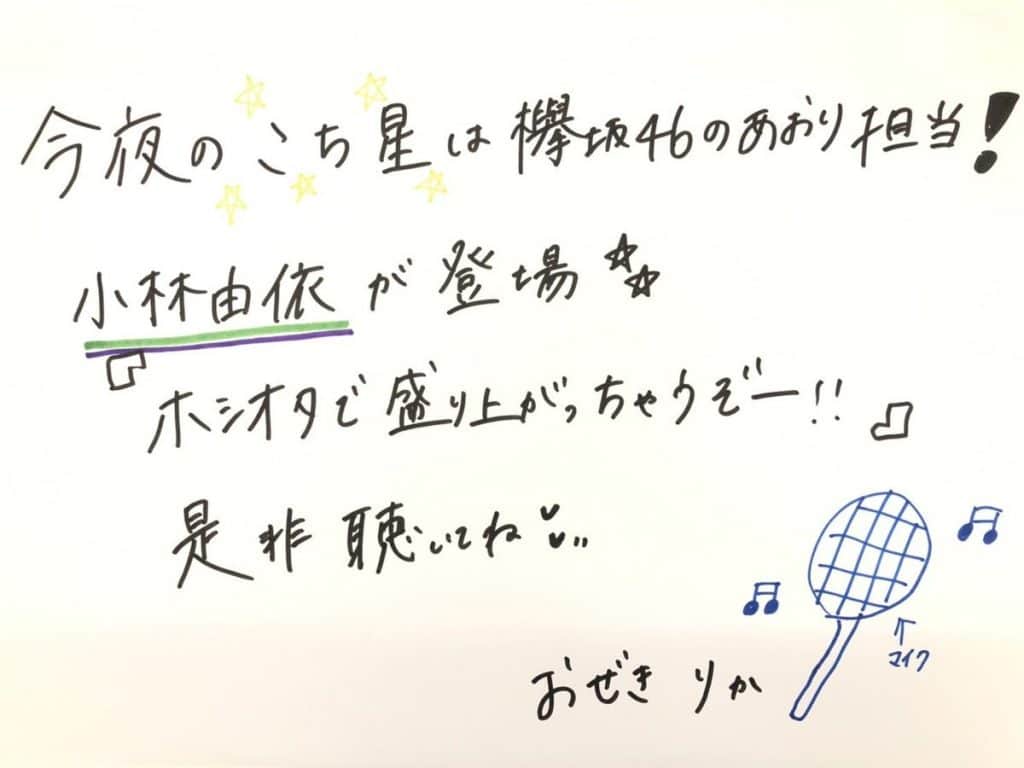 今夜のこち星は欅坂46のあおり担当!
小林由依が登場☆☆
『ホシオタで盛り上がっちゃうぞー!!』
是非聴いてね
マイク
おぜきりか